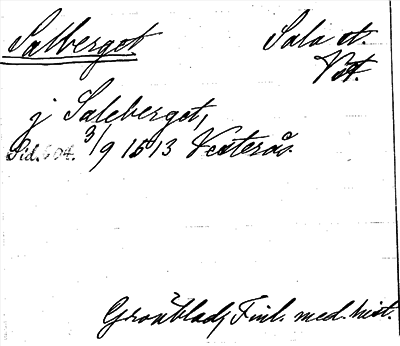 Salberget
Sala st.
Vst.
j Saleberget,
Sid. 604. 3/9 1513 Vesterås.
Grönblad, Finl. med. hist.